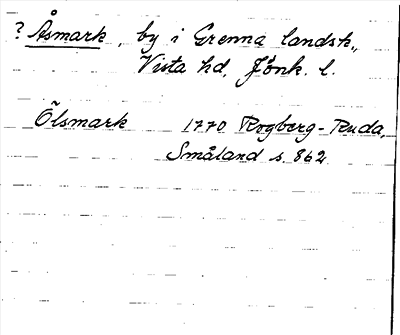 ? Åsmark, by i Grenna landsk.,
Vista hd, Jönk. l.
Ölsmark 1770 Rogberg-Ruda,
Småland s. 862